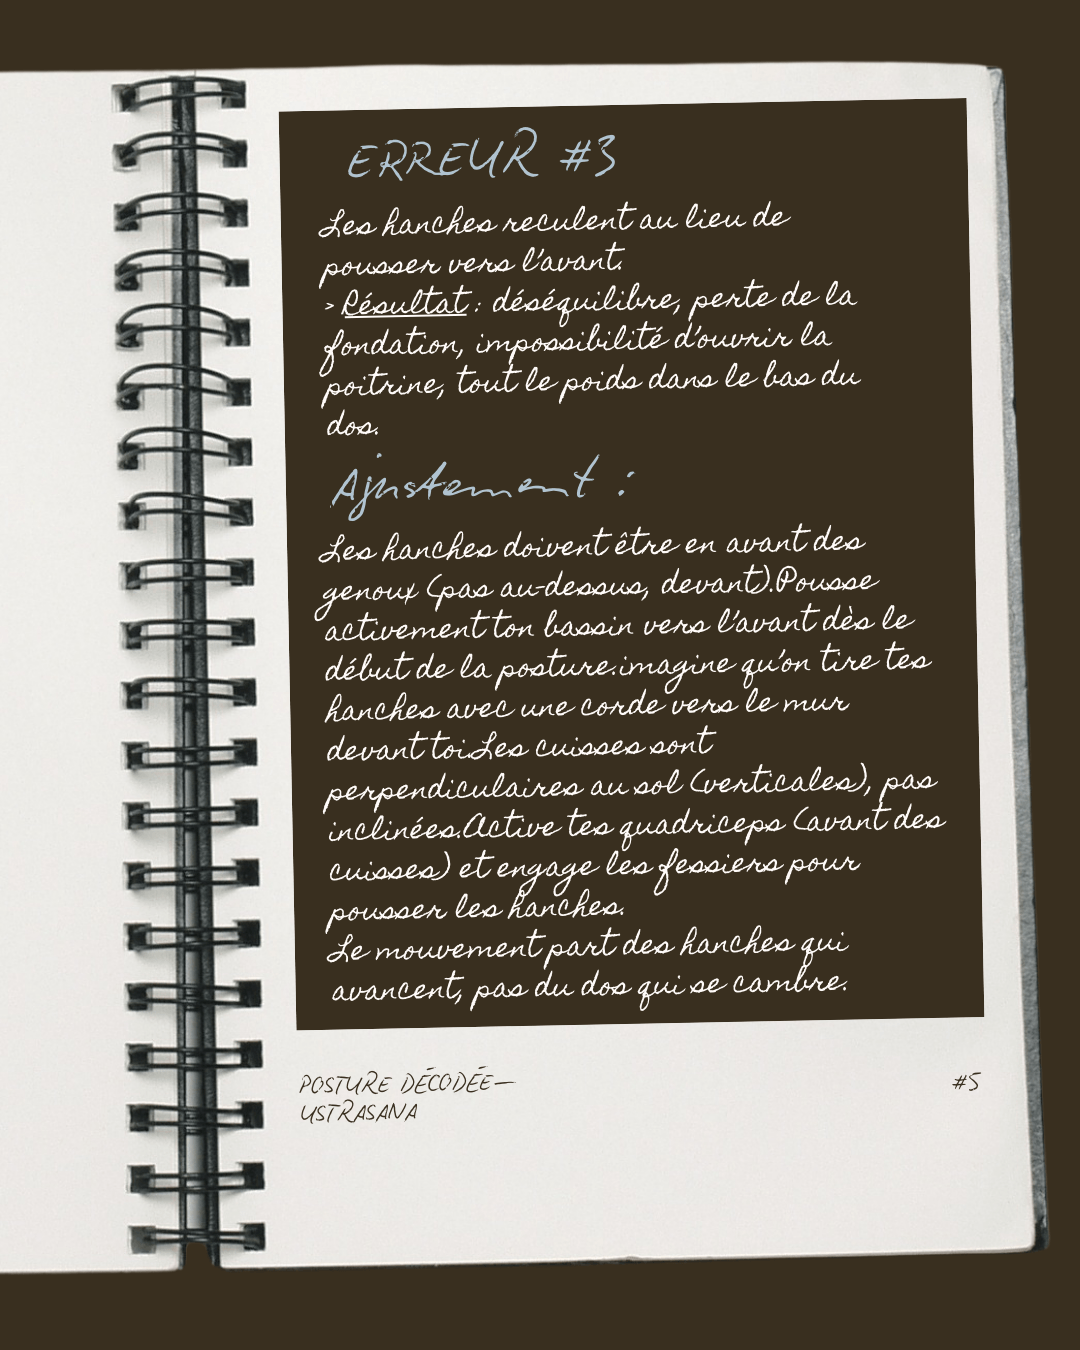 ERREUR #3
Les hanches reculent au lieu de
pousser vers l'avant.
> Résultat : déséquilibre, perte de la
fondation, impossibilité d'ouvrir la
poitrine, tout le poids dans le bas du
dos.
Ajustement :
Les hanches doivent être en avant des
genoux (pas au-dessus, devant).Pousse
activement ton bassin vers l'avant dès le
début de la posture.imagine qu'on tire tes
hanches avec une corde vers le mur
devant toi.Les cuisses sont
perpendiculaires au sol (verticales), pas
inclinées.Active tes quadriceps (avant des
cuisses) et engage les fessiers pour
pousser les hanches.
Le mouvement part des hanches qui
avancent, pas du dos qui se cambre.
POSTURE DÉCODÉE—
USTRASANA
#5